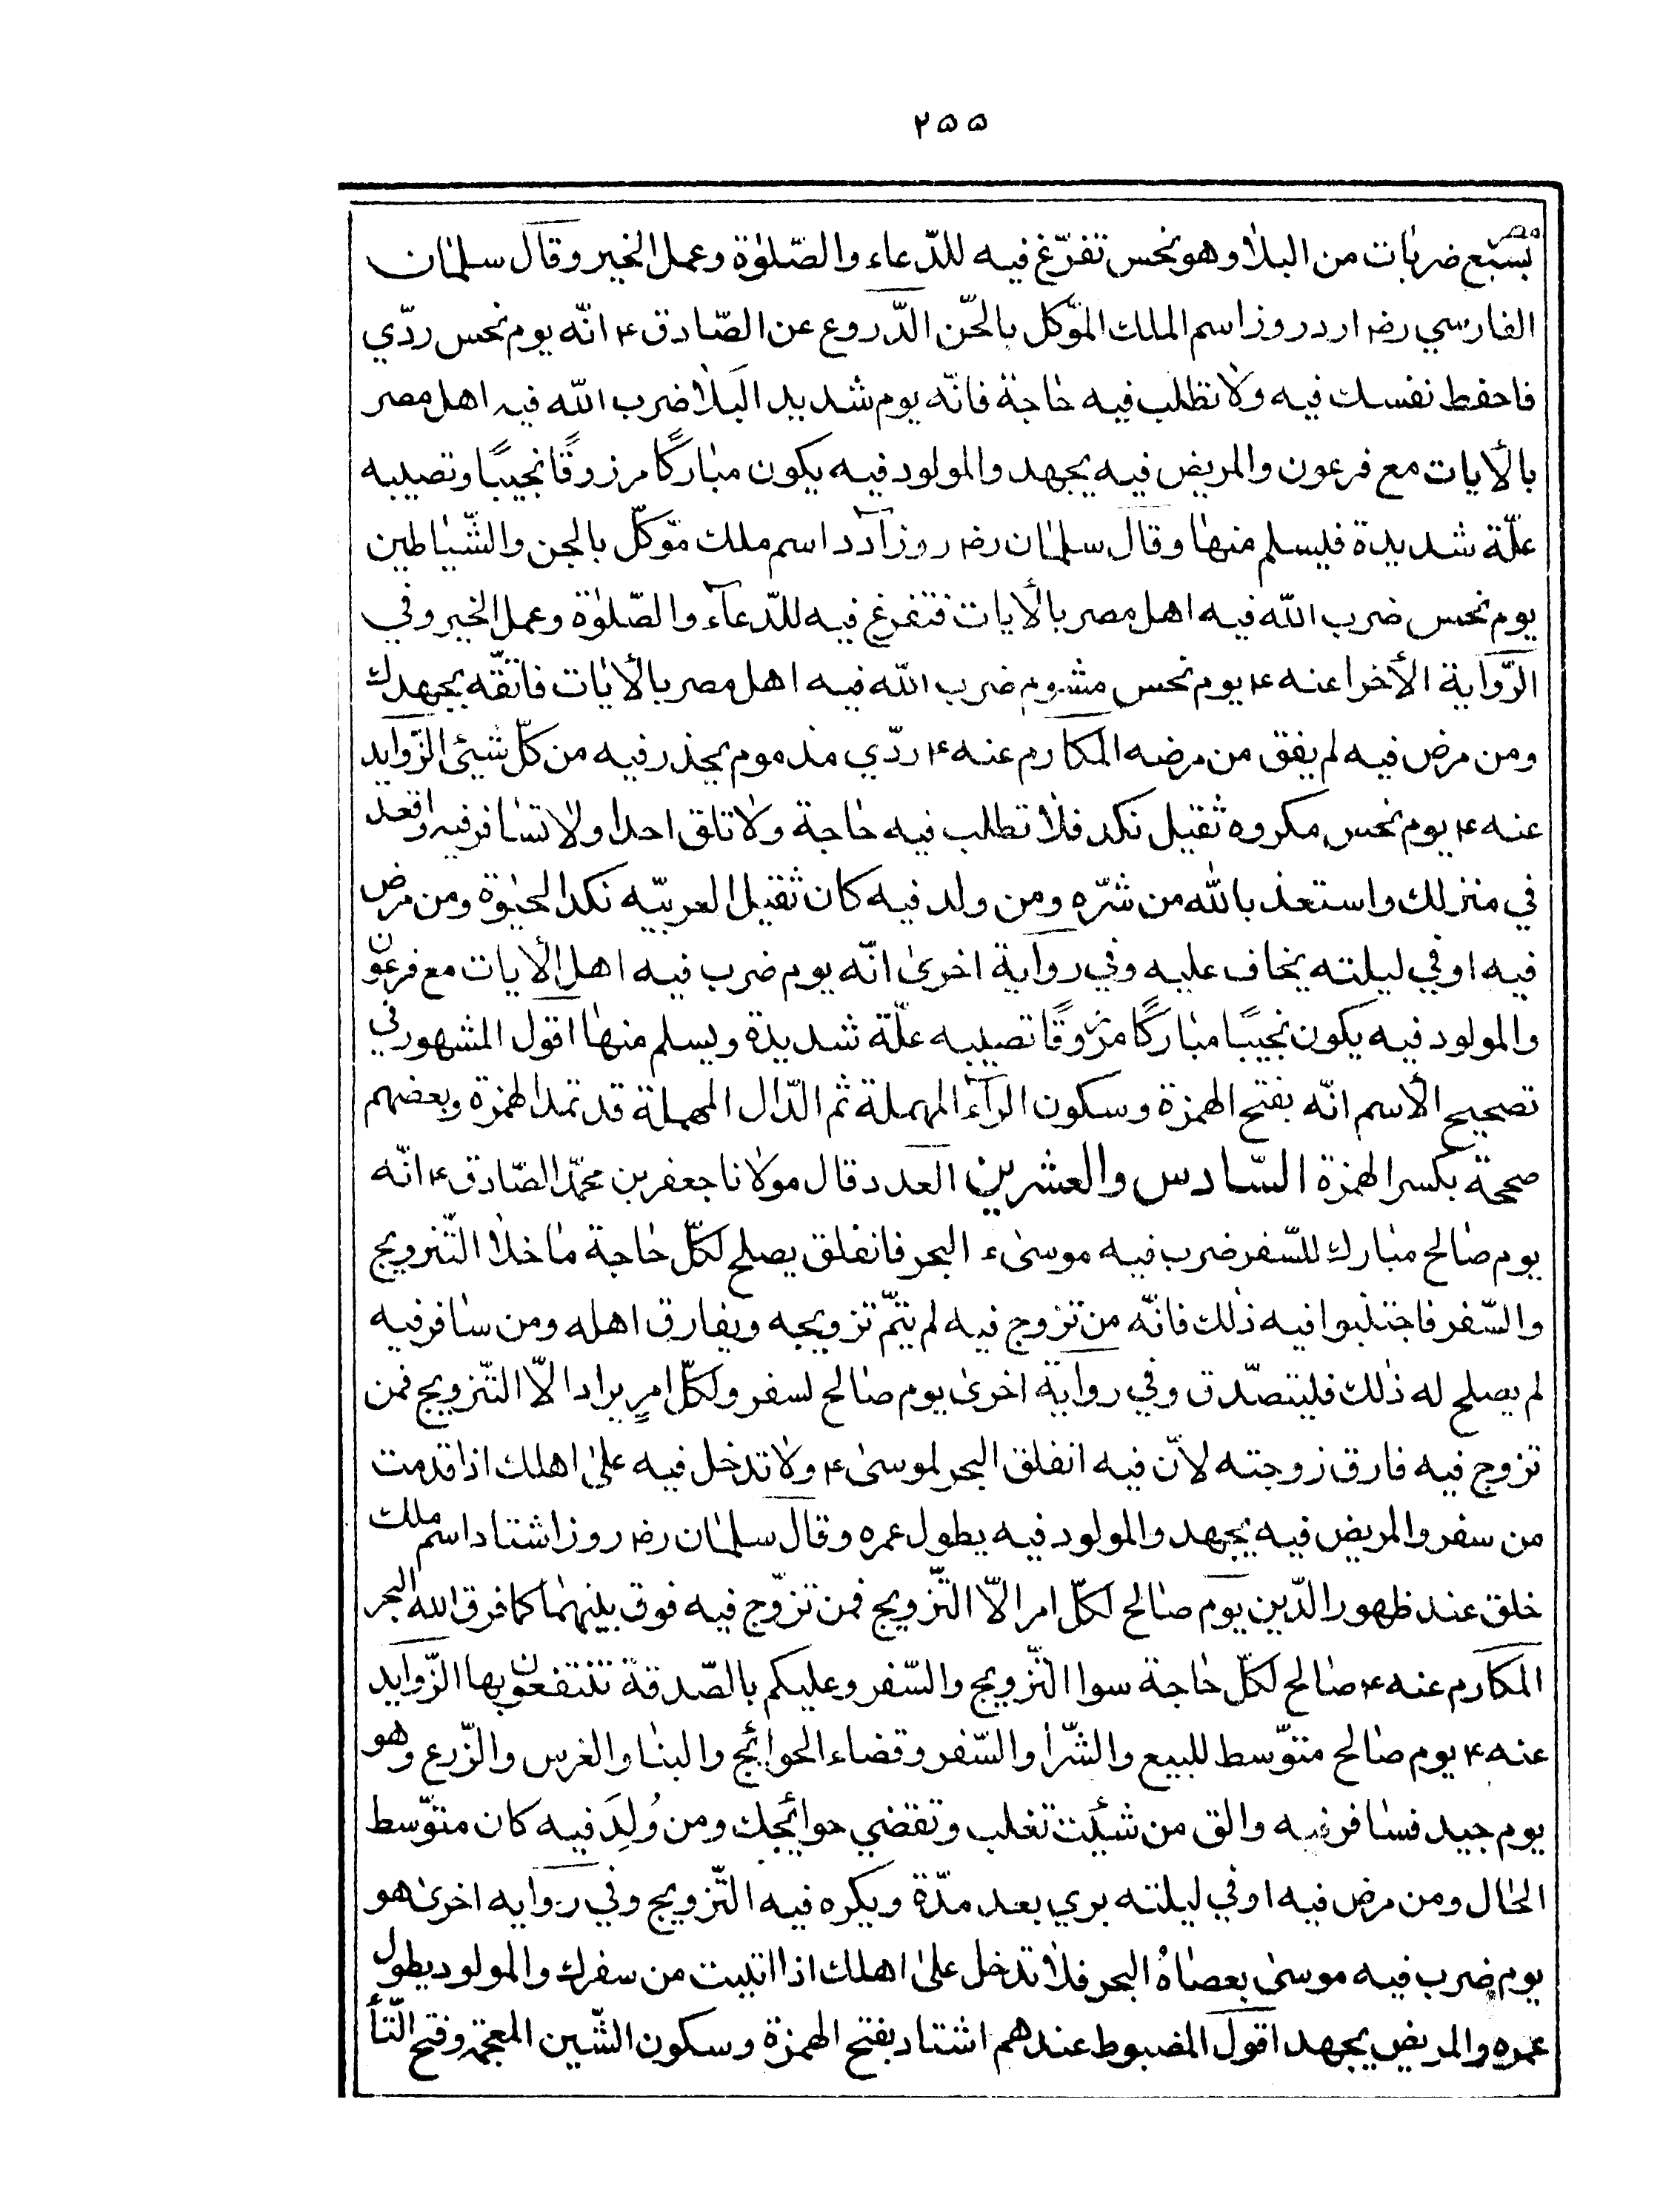 ۲۵۵
مصر
بسبع ضربات من البلا وهو نحس تفرّغ فيه للدّعاء والصّلوٰة وعمل الخير وقال سلمان
الفارسي رضہ ارد روز اسم الملك المؤكّل بالجّن الدّروع عن الصّادق ۴ انّه يوم نحس ردّي
فاحفظ نفسك فيه ولا تطلب فيه حاجة فانّه يوم شديد البلا ضرب الله فيه اهل مصر
بالأيات مع فرعون والمريض فيه يجهد والمولود فيه يكون مباركًا مرزوقًا نجيبًا وتصيبه
علّة شديدة فيسلم منها وقال سلمان رضہ روز آدد اسم ملك مؤكّل بالجن والشّياطين
يوم نحس ضرب الله فيه اهل مصر بالأيات فتفرغ فيه للدّعآء والصّلوٰة وعمل الخير وفي
الرّواية الأخرا عنه ۴ يوم نحس مشوم ضرب الله فيه اهل مصر بالأيات فاتقّه بجهدك
ومن مرض فيه لم يفق من مرضه المكارم عنه ۴ ردّي مذموم يحذر فيه من كلّ شيئ الزّوايد
عنه ۴ يوم نحس مكروه ثقيل نكد فلا تطلب فيه حاجة ولا تلق احدا ولا تسافر فيه واقعد
في منزلك واستعذ بالله من شرّه ومن ولد فيه كان ثقيل العربيّه نكد الحيوة ومن مرض
فيه او في ليلته يخاف عليه وفي رواية اخرى انّه يوم ضرب فيه اهل الأيات مع فرعون
والمولود فيه يكون نجيبًا مباركًا مرزوقًا تصيبه علّة شديدة ويسلم منها اقول المشهور في
تصحيح الأسم انّه بفتح الهمزة وسكون الرآء المهملة ثم الدّال المهملة قد تمد الهمزة وبعضهم
صححة بكسر الهمزة السّادس والعشرين العدد قال مولانا جعفر بن محمّد الصّادق ۴ انّه
يوم صالح مبارك للسّفر ضرب فيه موسىٰ ء البحر فانفلق يصلح لكلّ حاجة ما خلا التّزويج
والسّفر فاجتنبوا فيه ذٰلك فانّه من تزوج فيه لم يتمّ تزويجه ويفارق اهله ومن سافر فيه
لم يصلح له ذٰلك فليتصدّق وفي رواية اخرىٰ يوم صالح لسفر ولكلّ امرٍ يراد الّا التّزويج فمن
تزوج فيه فارق زوجته لانّ فيه انفلق البحر لموسىٰ ۴ ولا تدخل فيه علىٰ اهلك اذا قدمت
من سفر والمريض فيه يجهد والمولود فيه يطول عمره وقال سلمان رضہ روز اشتاد اسم ملك
خلق عند ظهور الدّين يوم صالح لكلّ امر الّا التّزويج فمن تزوّج فيه فوق بينهما كما فرق الله البحر
المكارم عنه ۴ صالح لكلّ حاجة سوا التّزويج والسّفر وعليكم بالصّدقة تنتفعون بها الزّوايد
عنه ۴ يوم صالح متوّسط للبيع والشّرا والسّفر وقضاء الحوائج والبنا والغرس والزّرع وهو
يوم جيد فسافر فيه والق من شئت تغلب وتقضي حوائجك ومن وُلِدَ فيه كان متوّسط
الحال ومن مرض فيه او في ليلته بري بعد مدّة ويكره فيه التّزويج وفي روايه اخرىٰ هو
يوم ضرب فيه موسىٰ بعصاهُ البحر فلا تدخل علىٰ اهلك اذا اتيت من سفرك والمولود يطول
عمره والمريض يجهد اقول المضبوط عندهم اشتاد بفتح الهمزة وسكون الشّين المعجمة وفتح التّأ